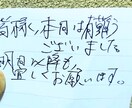 高稼く、本日は有難う
ございました
明日以降も
宜しくお願いします。